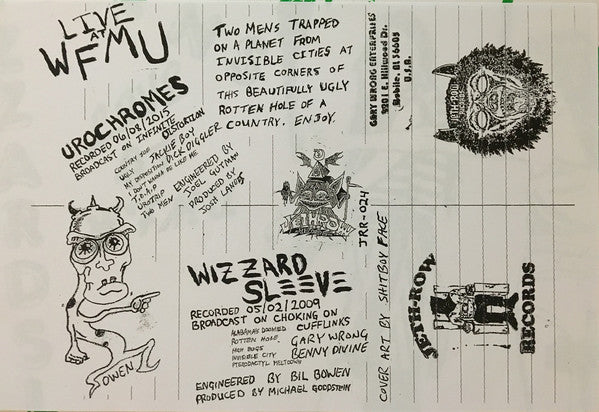 LIVE
AT
WFMU
UROCHROMES
RECORDED 06/08/2015
BROADCAST ON INFINITE
DISTORTION
COUNTRY SON
UGLY
JACKIE BOY
MY DISPOSITION
DICK DIGGLER
I DON'T WANNA BE LIKE ME
T.R.A.P
UROTRIP
TWO MEN
ENGINEERED BY
JOEL GUTMAN
PRODUCED BY
JOSH LANDES
TWO MENS TRAPPED
ON A PLANET FROM
INVISIBLE CITIES AT
OPPOSITE CORNERS OF
THIS BEAUTIFULLY UGLY
ROTTEN HOLE OF A
COUNTRY. ENJOY.
GARY WRONG ENTERPRISES
3201 E. Hillwood Dr.
Mobile, Al 36605
U.S.A.
JETHROW
JRR-024
WIZZARD
SLEEVE
RECORDED 05/02/2009
BROADCAST ON CHOKING ON
CUFFLINKS
ALABAMAS DOOMED
ROTTEN HOLE
GARY WRONG
INVISIBLE CITY
BENNY DIVINE
PTERODACTYL MELTDOWN
ENGINEERED BY BIL BOWEN
PRODUCED BY MICHAEL GOODSTEIN
COVER ART BY SHITBOY FACE
JETH-ROW
RECORDS
OWEN